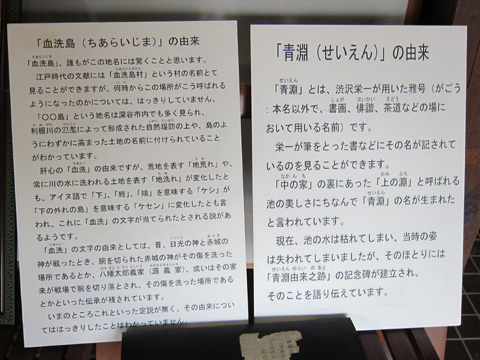 「血洗島（ちあらいじま）」の由来
「血洗島」、誰もがこの地名には驚くことと思います。
江戸時代の文献には「血洗島村」という村の名前とて
見ることができますが、何時からこの場所がこう呼ばれる
ようになったのかについては、はっきりしていません。
「〇〇島」という地名は深谷市内でも多く見られ、
利根川の氾濫によって形成された自然堤防の上や、島のよ
うにわずかに高まった土地の名前に付けられていること
がわかっています。
肝心の「血洗」の由来ですが、荒地を表す「地荒れ」や、
常に川の水に洗われる土地を表す「地洗れ」が変化したと
も、アイヌ語で「下」、「終」、「端」を意味する「ケシ」が
「下の外れの島」を意味する「ケセン」に変化したとも言
われ、これに「血洗」の文字が当てられたとされる説があ
るようです。
「血洗」の文字の由来としては、昔、日光の神と赤城の
神が戦ったとき、腕を切られた赤城の神がその傷を洗った
場所であるとか、八幡太郎義家（源義家）、或いはその家
来が戦場で腕を切り落とされ、その傷を洗った場所である
とかといった伝承が残されています。
いまのところこれといった定説が無く、その由来につい
てははっきりしたことはわかっていません。
「青淵（せいえん）」の由来
「青淵」とは、渋沢栄一が用いた雅号（がごう
：本名以外で、書画、俳諧、茶道などの場に
おいて用いる名前）です。
栄一が筆をとった書などにその名が記されて
いるのを見ることができます。
「中の家」の裏にあった「上の淵」と呼ばれる
池の美しさにちなんで「青淵」の名が生まれた
と言われています。
現在、池の水は枯れてしまい、当時の姿
は失われてしまいましたが、そのほとりには
「青淵由来之跡」の記念碑が建立され、
そのことを語り伝えています。